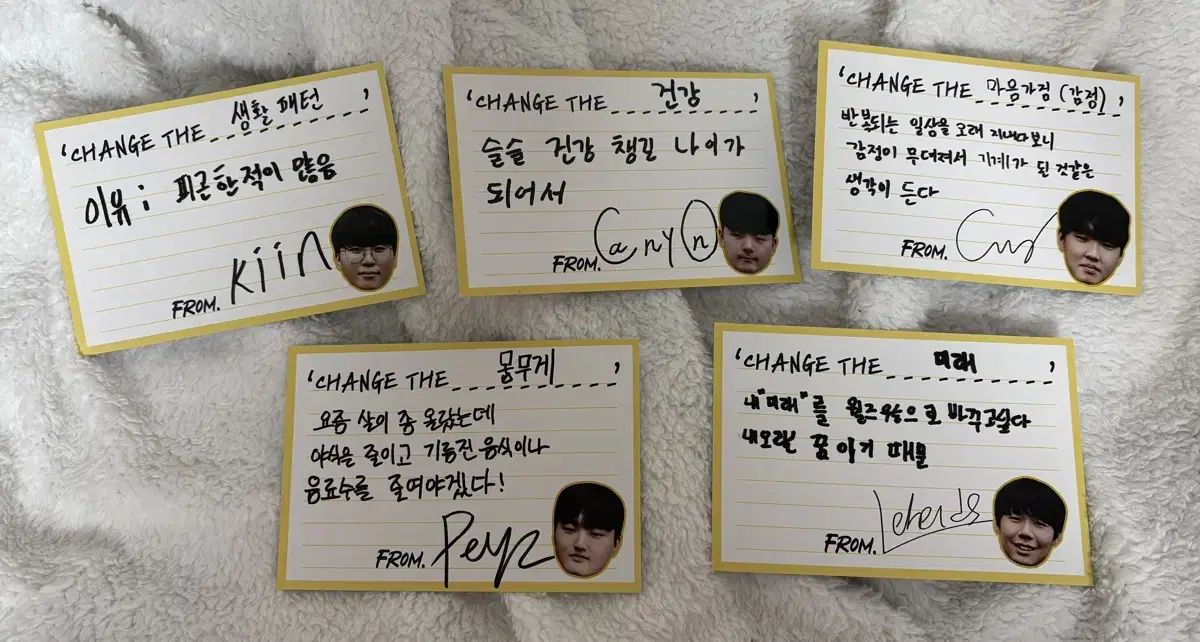 'CHANGE THE 생활패턴'
이유: 피곤한적이 많음
FROM. Kiin
'CHANGE THE 건강'
슬슬 건강 챙길 나이가
되어서
FROM. Canyon
'CHANGE THE 마음가짐(감정)'
반복되는 일상을 오래 지내다보니
감정이 무뎌져서 기계가 된 것같은
생각이 든다
FROM.
'CHANGE THE 몸무게'
요즘 살이 좀 올랐는데
야식을 줄이고 기름진 음식이나
음료수를 줄여야겠다!
FROM. Peyz
'CHANGE THE 미래'
내 "미래"를 월즈우승으로 바꾸고싶다
내오랜 꿈이기 때문
FROM. Lehends